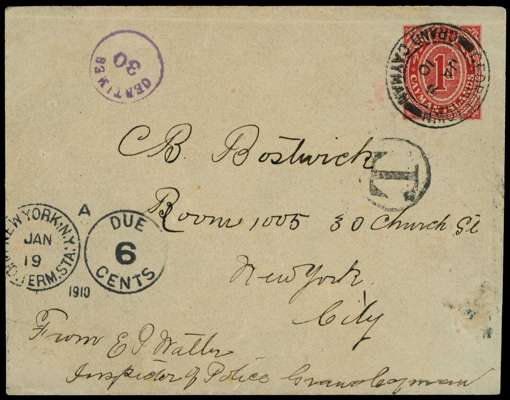 CENTIMES
30
GEORGETOWN
GRAND CAYMAN
JA
10
1D
CAYMAN ISLANDS
T
C. B. Bostwick
Room 1005 30 Church St
New York
City
NEW YORK, N.Y.
JAN
19
TERM. STA.
1910
A
DUE
6
CENTS
From E J Watler
Inspector of Police Grand Cayman